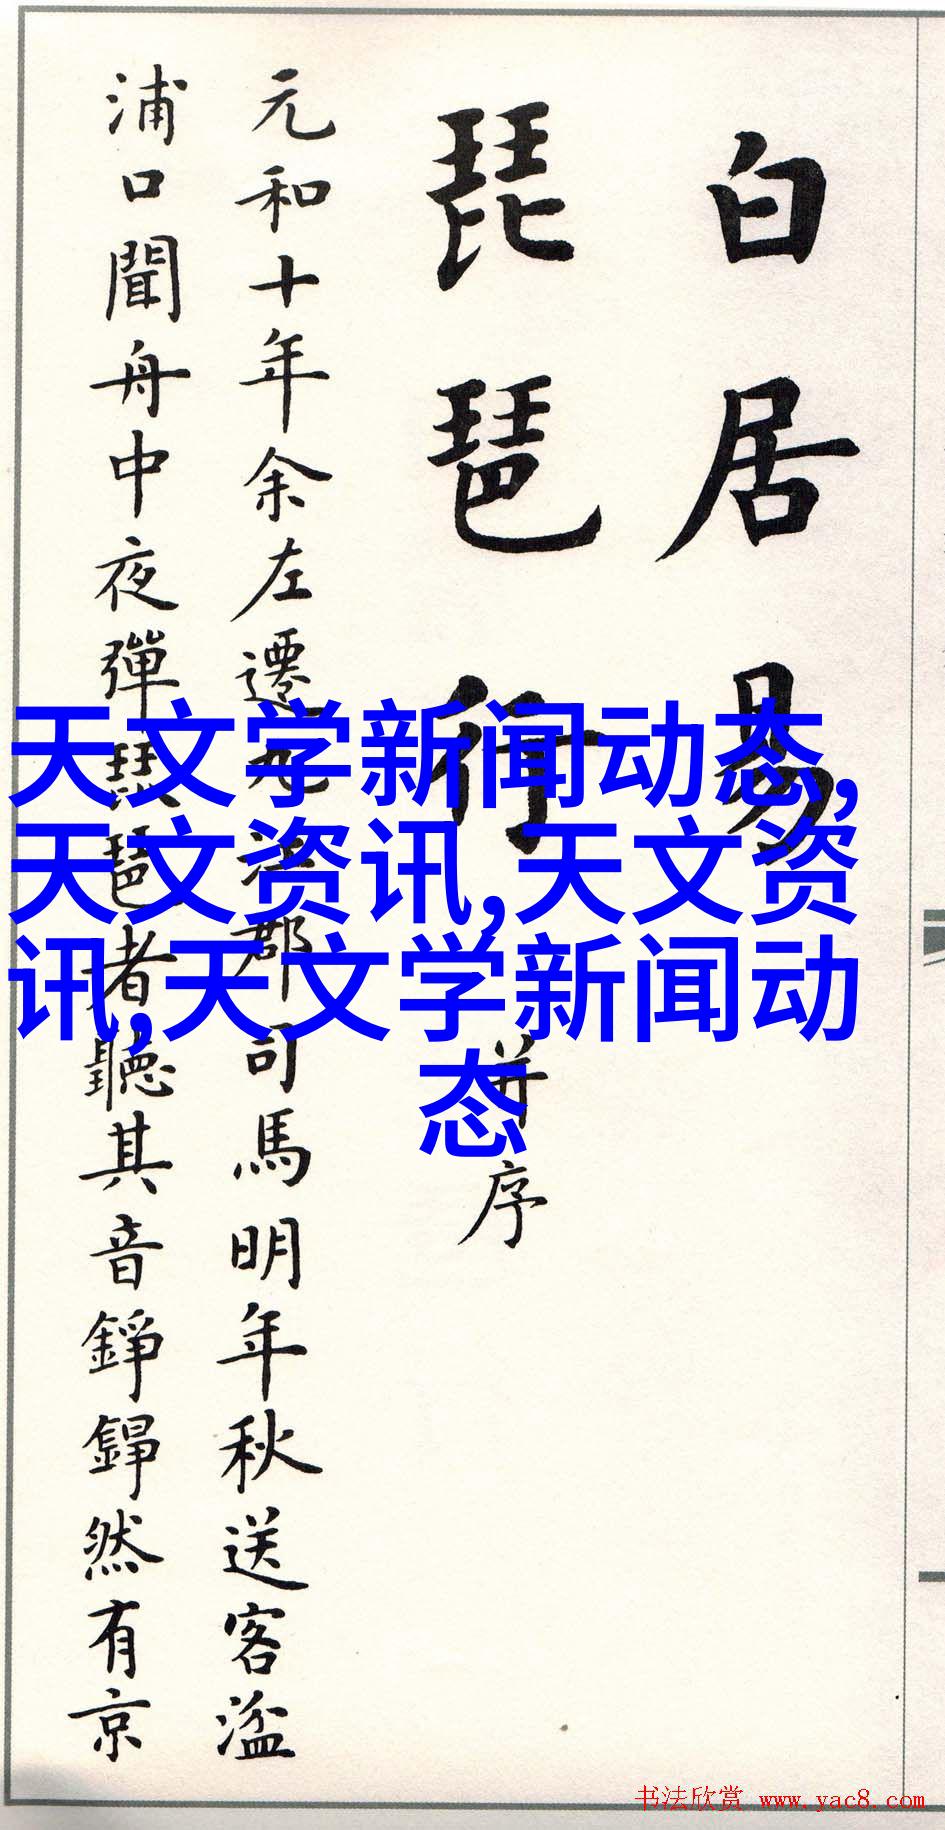 白居易
琵琶行 并序
元和十年余左遷九江郡司馬明年秋送客湓
浦口聞舟中夜彈琵琶者聽其音錚錚然有京
天文学新闻动态,
天文资讯,天文资
讯,天文学新闻动
态
书法欣赏 www.yac8.com